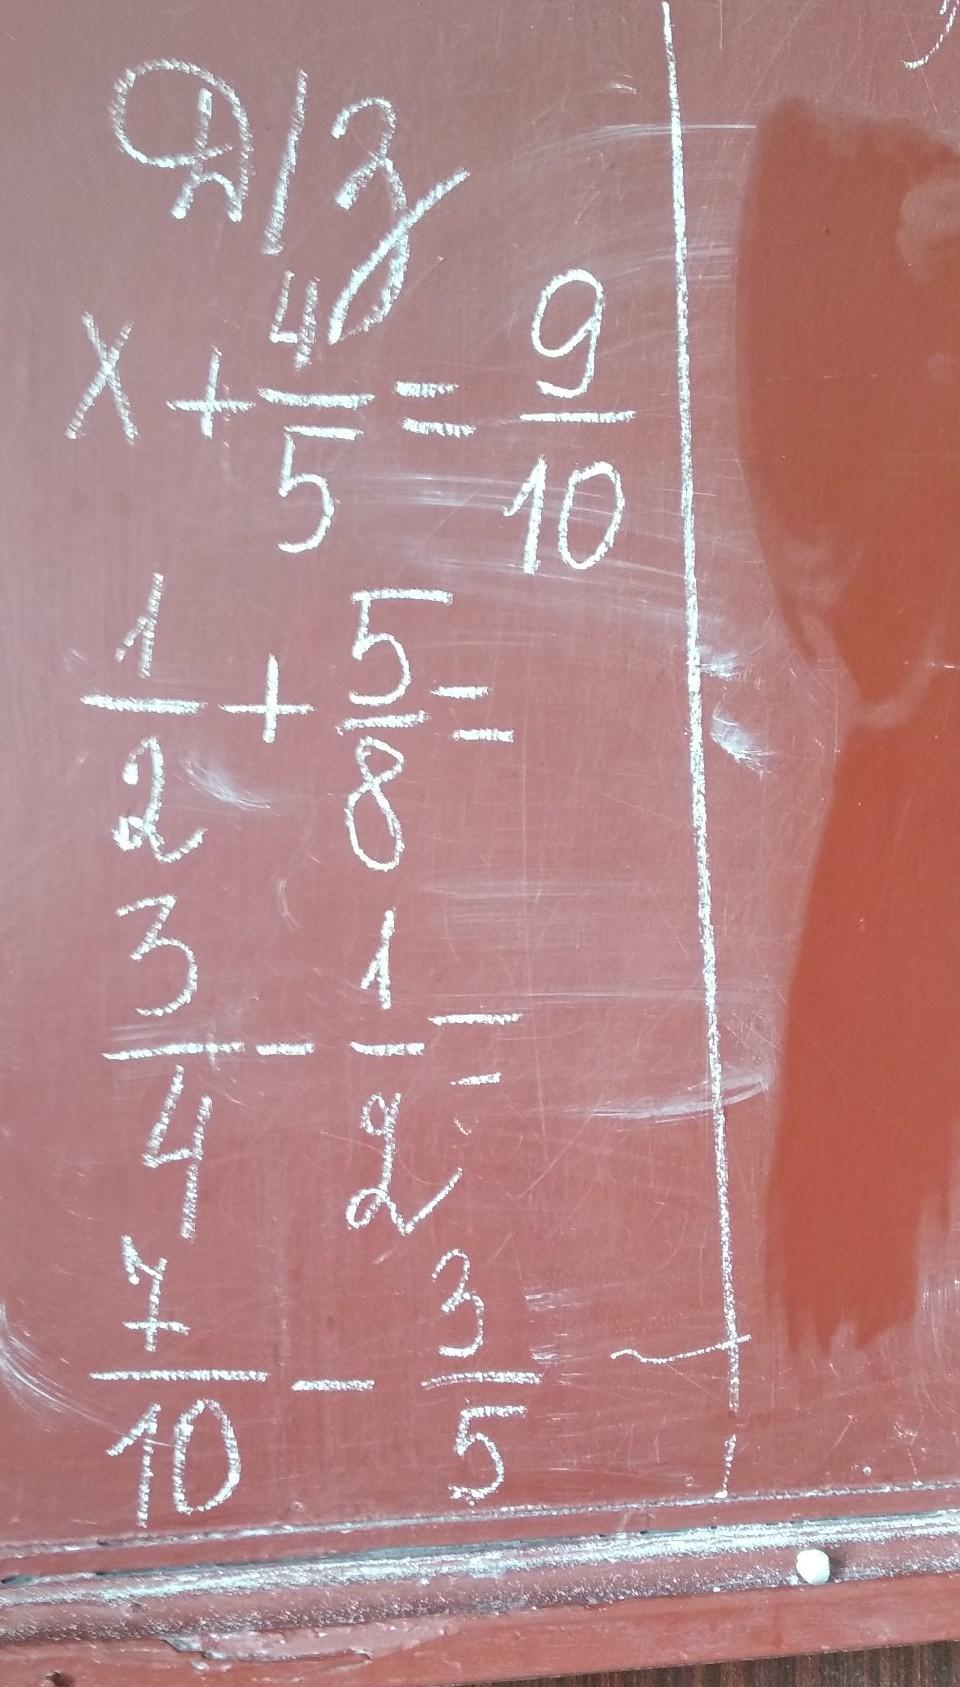 Д/З
x + 4/5 = 9/10
1/2 + 5/8 =
3/4 - 1/2 =
7/10 - 3/5